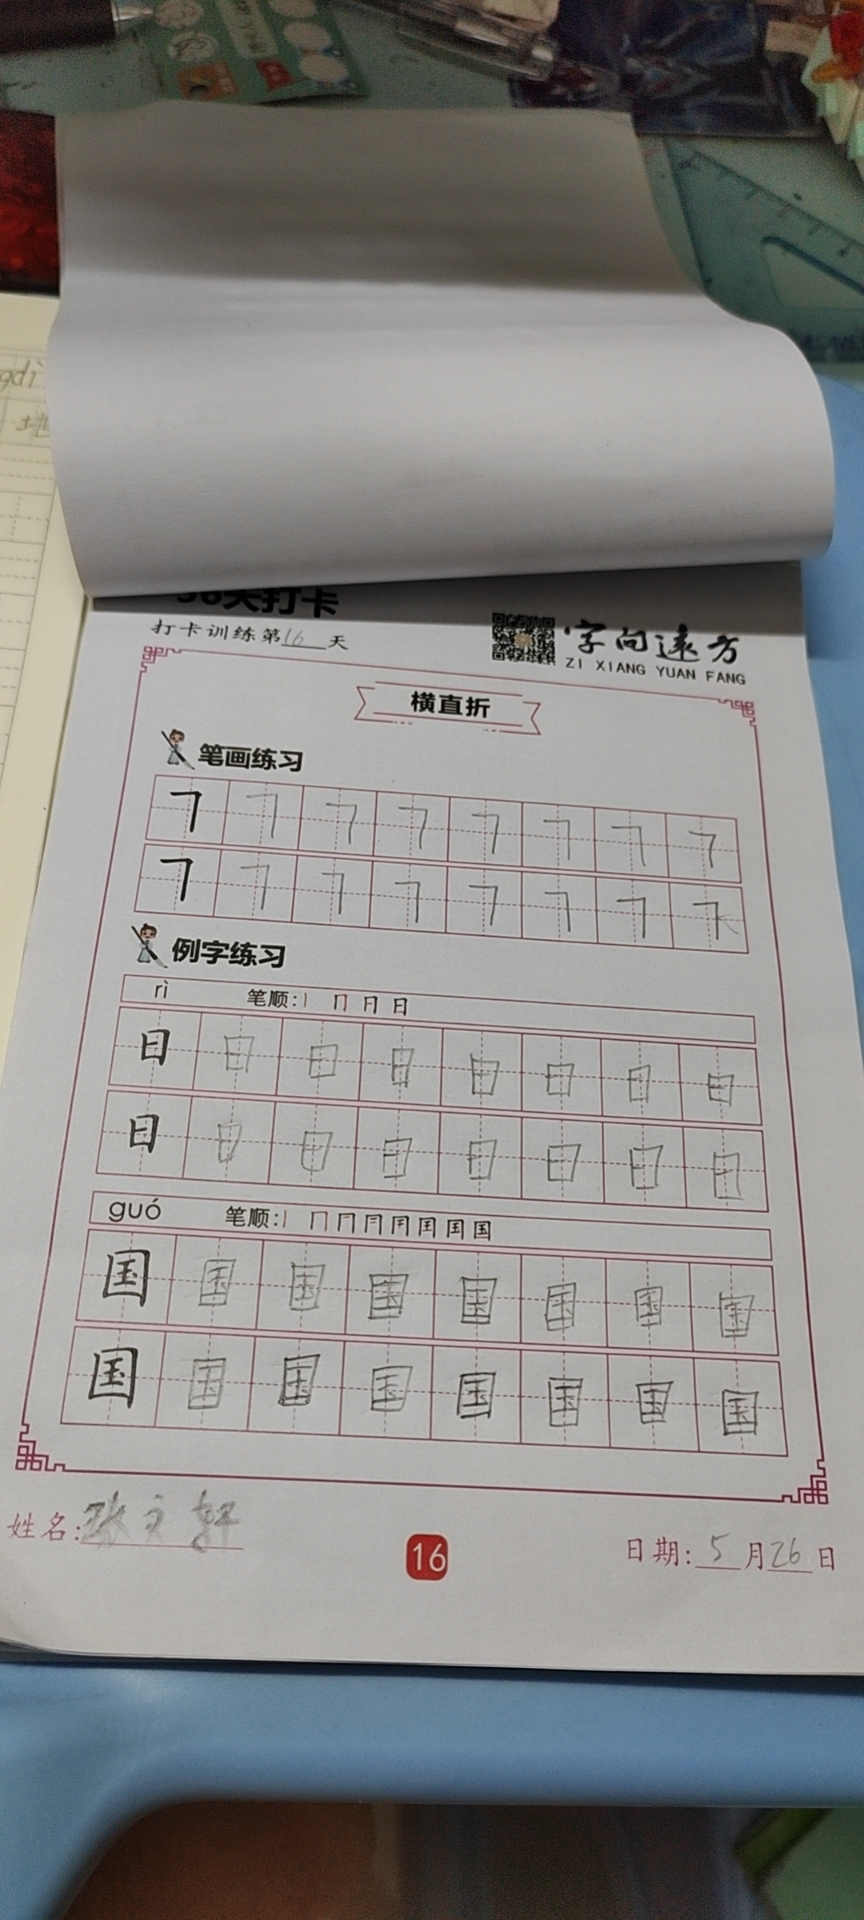 gdì
地
天打卡
打卡训练第16天
字向远方
ZI XIANG YUAN FANG
横直折
笔画练习
㇕ ㇕ ㇕ ㇕ ㇕ ㇕ ㇕ ㇕
㇕ ㇕ ㇕ ㇕ ㇕ ㇕ ㇕ ㇕
例字练习
rì 笔顺:丨 冂 日 日
日 日 日 日 日 日 日 日
日 日 日 日 日 日 日 日
guó 笔顺:丨 冂 国
国 国 国 国 国 国 国 国
国 国 国 国 国 国 国 国
姓名:张文轩
16
日期:5月26日